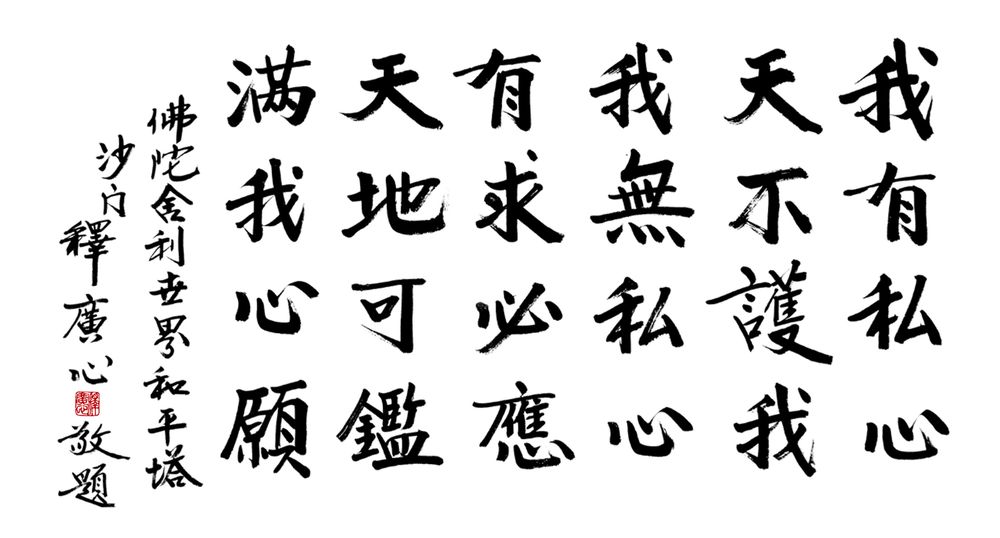 我有私心
天不護我
我無私心
有求必應
天地可鑑
滿我心願
佛陀舍利世界和平塔
沙门釋廣心敬題